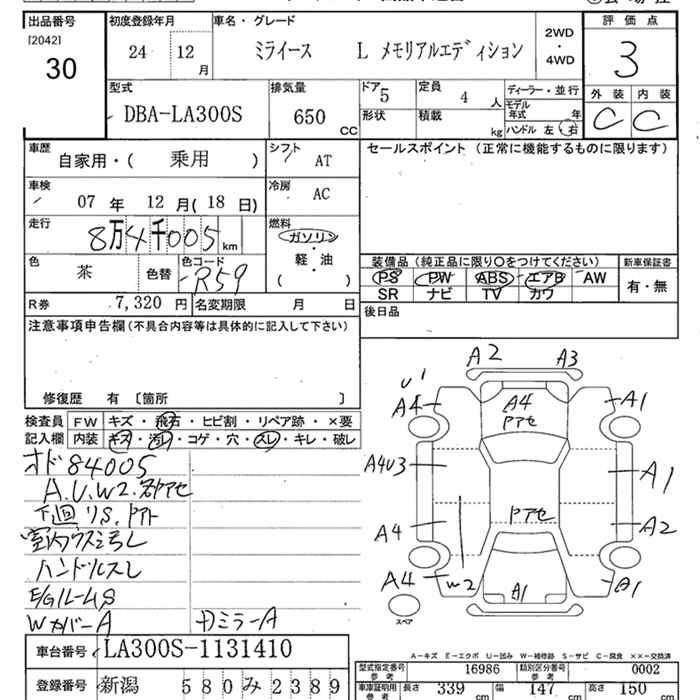 出品番号
[2042]
30
初度登録年月
24 12月
車名・グレード
ミライース L メモリアルエディション
2WD・4WD
評価点
3
型式
DBA-LA300S
排気量
650 CC
ドア 5
定員 4 人
形状
積載 kg
ディーラー・並行
モデル年式 年
ハンドル 左・右
外装 内装
C C
車歴
自家用・( 乗用 )
シフト AT
セールスポイント (正常に機能するものに限ります)
車検
07 年 12 月 (18 日)
冷房 AC
走行
8万4千005 km
燃料
ガソリン
軽・油
( )
色 茶 色替
色コード R59
装備品 (純正品に限り○をつけてください)
新車保証書
PS PW ABS エアB AW
SR ナビ TV カワ
有・無
R券 7,320 円 名変期限 月 日
後日品
注意事項申告欄(不具合内容等は具体的に記入して下さい)
修復歴 有 〔箇所 〕
検査員記入欄
FW キズ・飛石・ヒビ割・リペア跡・×要
内装 キズ・汚れ・コゲ・穴・スレ・キレ・破レ
オド84005
A.U.W2.
下回リS.
ハンドルスレ
E/G
WカバーA
ミラーA
A2 A3
U1
A4 A4 A1
アセ
A4U3 A1
A4 アセ A2
A4 W2 A1 A1
スペア
A-キズ E-エクボ U-凹み W-補修跡 S-サビ C-腐食 XX-交換済
車台番号 LA300S-1131410
登録番号 新潟 580 み 2389
型式指定番号 参考 16986 類別区分番号 参考 0002
車庫証明用 参考 長さ 339 cm 幅 147 cm 高さ 150 cm